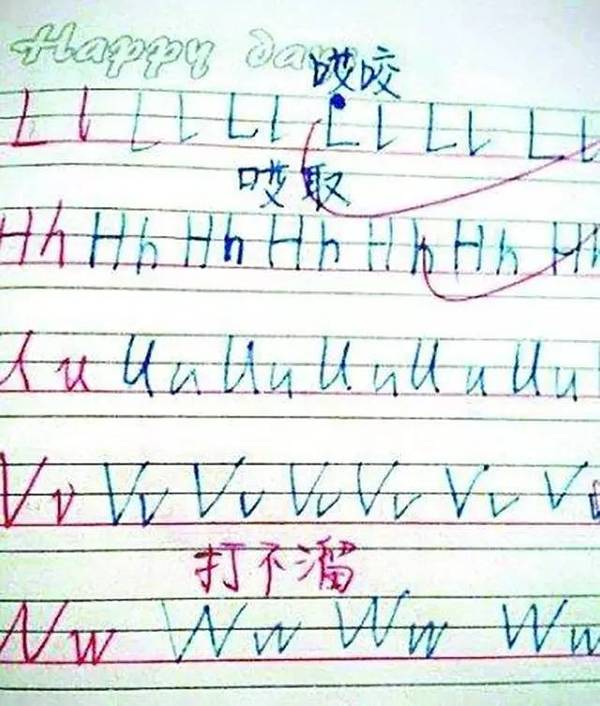 Happy day
哎咬
L l L l L l L l L l L l
哎取
H h H h H h H h H h H h H h
U u U u U u U u U u U u
V v V v V v V v V v V v V v
打不溜
W w W w W w W w